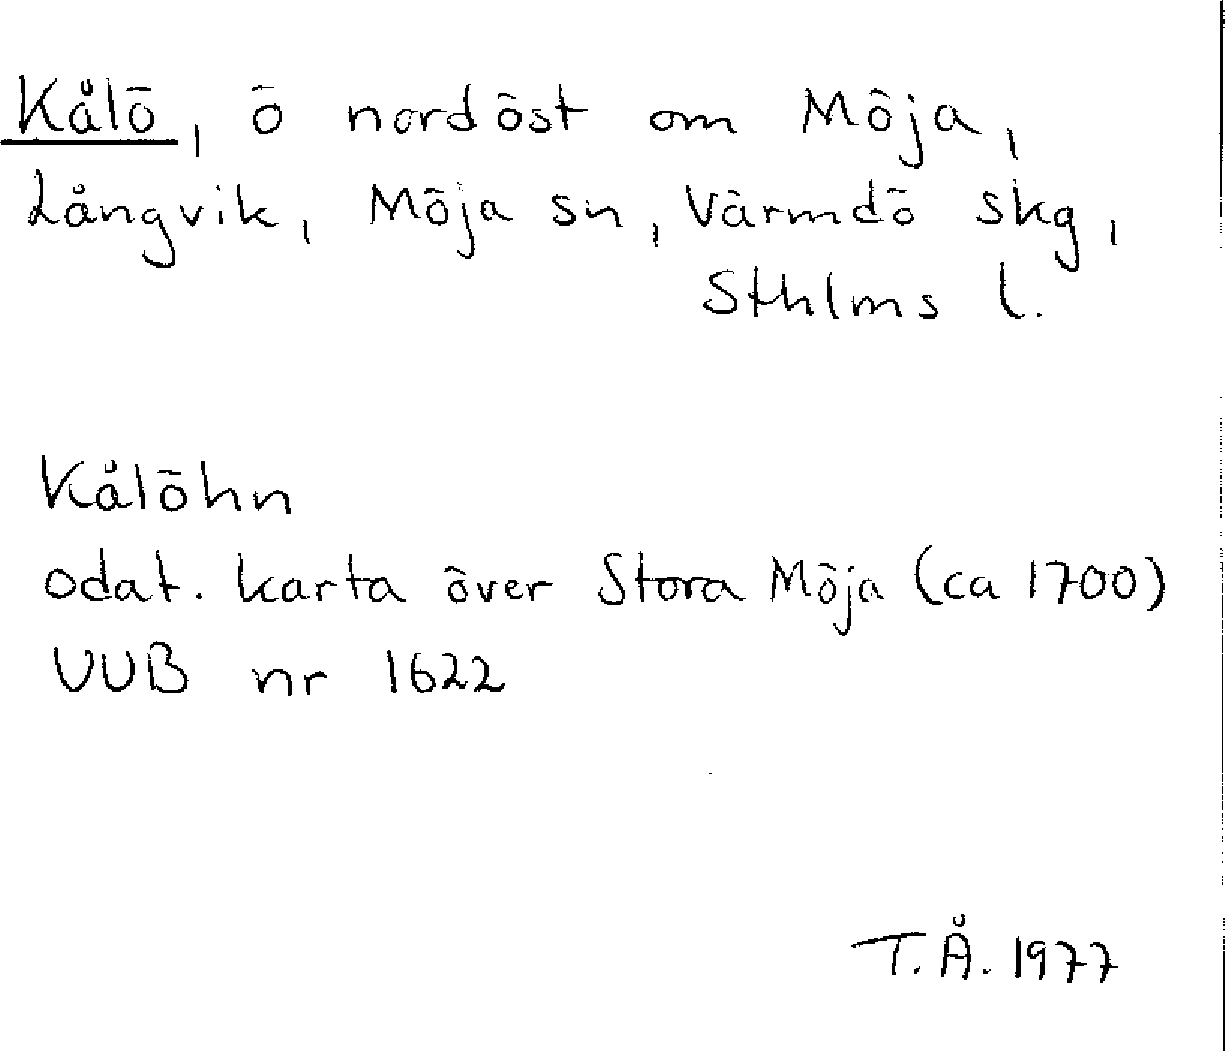 Kålö, ö nordöst om Möja,
Långvik, Möja sn, Värmdö skg,
Sthlms l.
Kålöhn
odat. karta över Stora Möja (ca 1700)
UUB nr 1622
T.Å. 1977